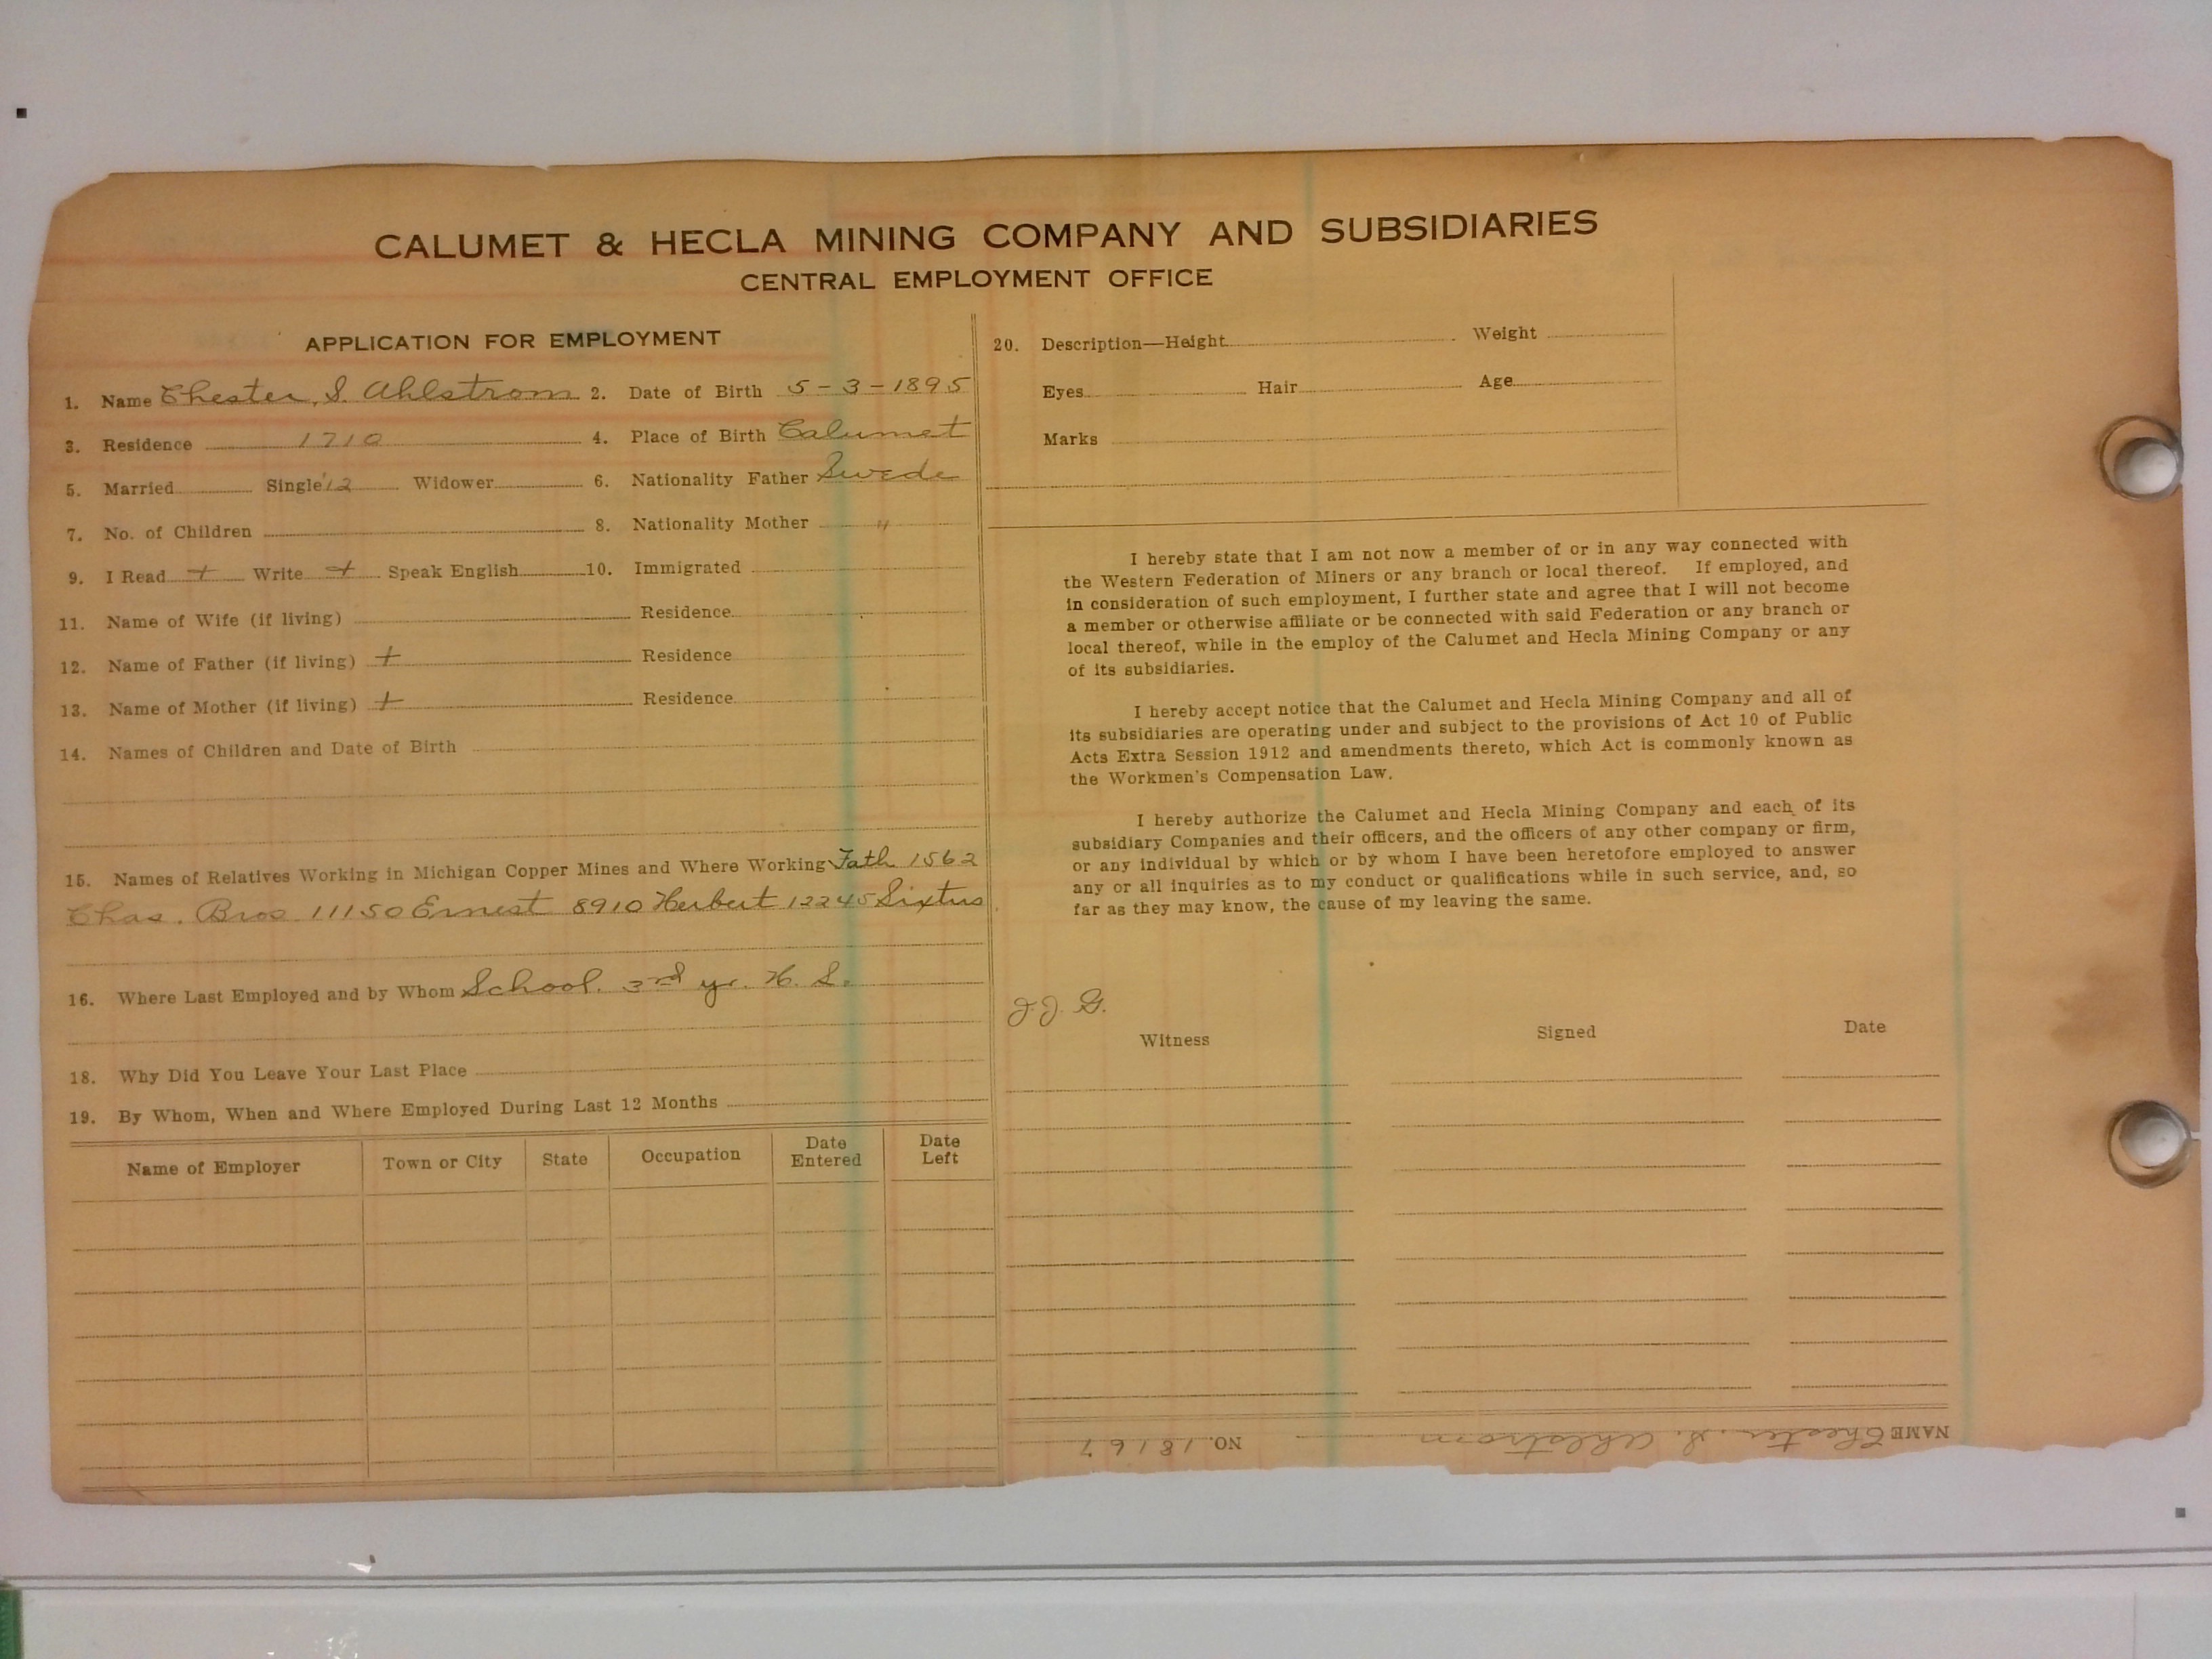 CALUMET & HECLA MINING COMPANY AND SUBSIDIARIES
CENTRAL EMPLOYMENT OFFICE
APPLICATION FOR EMPLOYMENT
1. Name Chester S. Ahlstrom 2. Date of Birth 5-3-1895
3. Residence 1710 4. Place of Birth Calumet
5. Married Single '12 Widower 6. Nationality Father Swede
7. No. of Children 8. Nationality Mother "
9. I Read + Write + Speak English 10. Immigrated
11. Name of Wife (if living) Residence
12. Name of Father (if living) + Residence
13. Name of Mother (if living) + Residence
14. Names of Children and Date of Birth
15. Names of Relatives Working in Michigan Copper Mines and Where Working Fath 1562
Chas. Bros 11150 Ernest 8910 Herbert 12245 Sixtus
16. Where Last Employed and by Whom School. 3rd yr. H. S.
18. Why Did You Leave Your Last Place
19. By Whom, When and Where Employed During Last 12 Months
Name of Employer Town or City State Occupation Date Entered Date Left
20. Description—Height Weight
Eyes Hair Age
Marks
I hereby state that I am not now a member of or in any way connected with
the Western Federation of Miners or any branch or local thereof. If employed, and
in consideration of such employment, I further state and agree that I will not become
a member or otherwise affiliate or be connected with said Federation or any branch or
local thereof, while in the employ of the Calumet and Hecla Mining Company or any
of its subsidiaries.
I hereby accept notice that the Calumet and Hecla Mining Company and all of
its subsidiaries are operating under and subject to the provisions of Act 10 of Public
Acts Extra Session 1912 and amendments thereto, which Act is commonly known as
the Workmen's Compensation Law.
I hereby authorize the Calumet and Hecla Mining Company and each of its
subsidiary Companies and their officers, and the officers of any other company or firm,
or any individual by which or by whom I have been heretofore employed to answer
any or all inquiries as to my conduct or qualifications while in such service, and, so
far as they may know, the cause of my leaving the same.
J. J. G.
Witness Signed Date
NAME Chester S. Ahlstrom NO. 18167